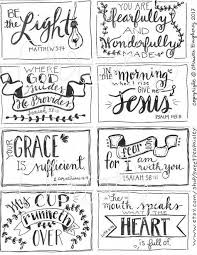 BE
the
Light
MATTHEW 5:14
YOU ARE
fearfully
AND
Wonderfully
MADE
WHERE
GOD
Guides
He Provides
IN the morning
when I rise
GIVE me
JESUS
YOUR
GRACE
is sufficient.
2 Corinthians
fear not
for I am
with you
ISAIAH
My
CUP
runneth
OVER
the MOUTH speaks
WHAT THE
HEART
is full of.
copyright © 2017
www.etsy.com/shop/